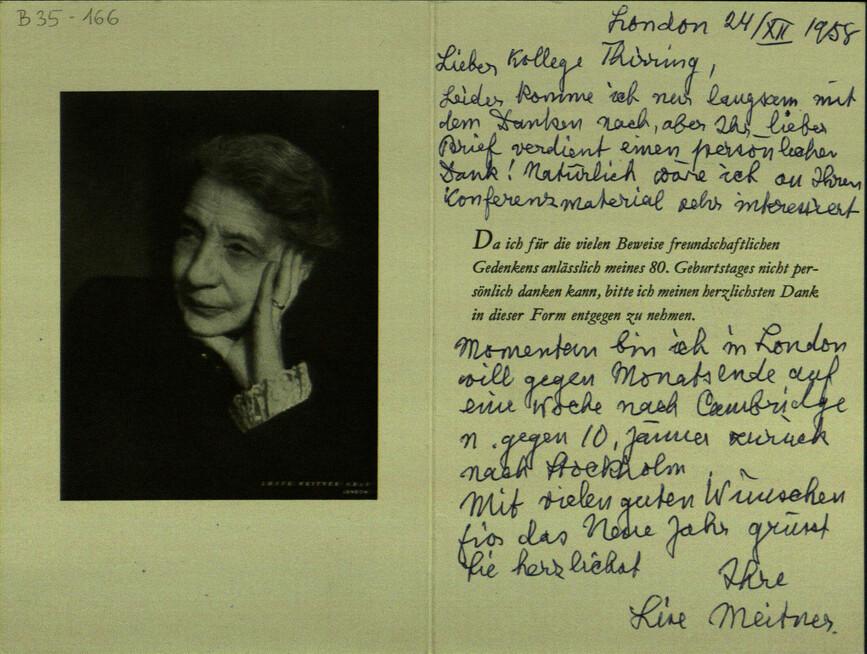 B 35 - 166
LOTTE MEITNER-GRAF
LONDON
London 24/XII 1958
Lieber Kollege Thirring,
Leider komme ich nur langsam mit
dem Danken nach, aber Ihr lieber
Brief verdient einen persönlichen
Dank! Natürlich wäre ich an Ihren
Konferenzmaterial sehr interessiert
Da ich für die vielen Beweise freundschaftlichen
Gedenkens anlässlich meines 80. Geburtstages nicht per-
sönlich danken kann, bitte ich meinen herzlichsten Dank
in dieser Form entgegen zu nehmen.
Momentan bin ich in London
will gegen Monatsende auf
eine Woche nach Cambridge
u. gegen 10. Jänner zurück
nach Stockholm.
Mit vielen guten Wünschen
für das Neue Jahr grüsst
Sie herzlichst
Ihre
Lise Meitner.